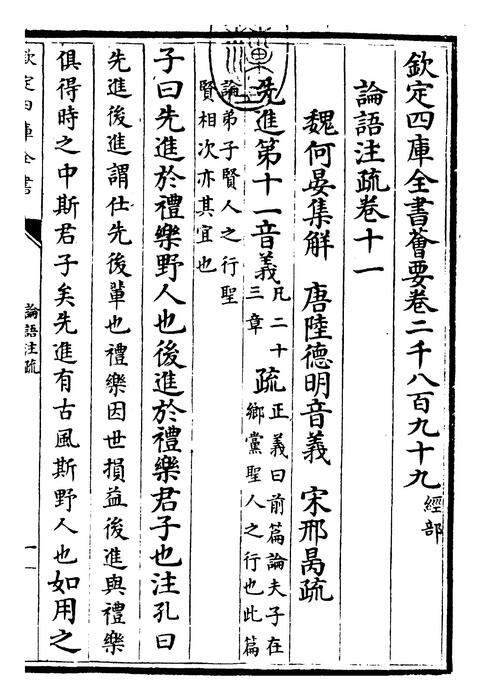 欽定四庫全書薈要卷二千八百九十九經部
論語注疏卷十一
魏何晏集解　唐陸德明音義　宋邢昺疏
先進第十一音義凡二十三章疏正義曰前篇論夫子在鄉黨聖人之行也此篇
論弟子賢人之行聖
賢相次亦其宜也
子曰先進於禮樂野人也後進於禮樂君子也注孔曰
先進後進謂仕先後輩也禮樂因世損益後進與禮樂
俱得時之中斯君子矣先進有古風斯野人也如用之
欽定四庫全書
論語注疏
一